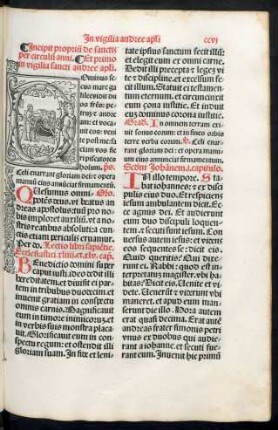 In vigilia andree apli
ccvj
Incipit propriũ de sanctis
per circulũ anni. Et primo
in vigilia sancti andree apli
Ominus se
cus mare ga
lilee vidit du
os fratres: pe-
trum ⁊ andre
am: ⁊ vocauit
eos: venite post
me: faciam vos
fieri piscatores
hominum. ps.
Celi enarrant gloriam dei: ⁊ opera
manuũ eius annũciat firmamentũ.
Quesumus omni-
potẽs deus: vt beatus an
dreas apostolus tuũ pro no
bis imploret auxiliũ: vt a no-
stris reatibus absoluti: a cun
ctis etiam periculis eruamur.
Per. Lectio libri sapiẽtie.
Ecclesiastici. xliiij. et xlv. cap.
Benedictio domini super
caput iusti. ideo dedit illi
hereditatem, et diuisit ei par-
tem in tribubus duodecim. et
inuenit gratiam in conspectu
omnis carnis. Magnificauit
eum in timore inimicorũ. et
in verbis suis monstra placa
uit. Glorificauit eum in con-
spectu regum: et ostendit illi
gloriam suam. In fide et leni
tate ipsius sanctum fecit illũ:
et elegit eum ex omni carne.
Dedit illi precepta et leges vi
te et discipline. et excelsum fe-
cit illum. Statuit ei testamen
tum eternum. et circumcinxit
eum zona iustitie. Et induit
eũ dominus corona iustitie.
In omnem terram ex-
iuit sonus eorum: et in fines orbis
terre verba eorum. Celi enar-
rant gloriam dei: et opera manuum
eius annunciat firmamentum.
Scdm Johãnem. i. capitulo.
In illo tempore. Sta-
bat iohannes: et ex disci-
pulis eius duo. Et respiciens
iesum ambulantem dicit. Ec-
ce agnus dei. Et audierunt
eum duo discipuli loquen-
tem. et secuti sunt iesum. Con-
uersus autem iesus: et videns
eos sequentes se: dicit eis.
Quid queritis? Qui dixe-
runt ei. Rabbi: quod est in-
terpretatum magister: vbi ha-
bitas? Dicit eis. Uenite et vi-
dete. Uenerũt et viderunt vbi
maneret. et apud eum man-
serunt die illo. Hora autem
erat quasi decima. Erat autẽ
andreas frater simonis petri
vnus ex duobus qui audie-
rant a iohanne. et secuti fue-
rant eum. Inuenit hic primũ